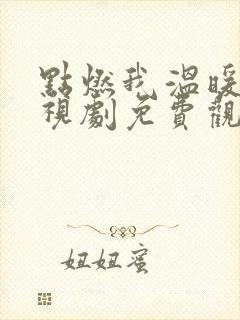 點燃我,溫暖
視劇免費觀
妞妞蜜